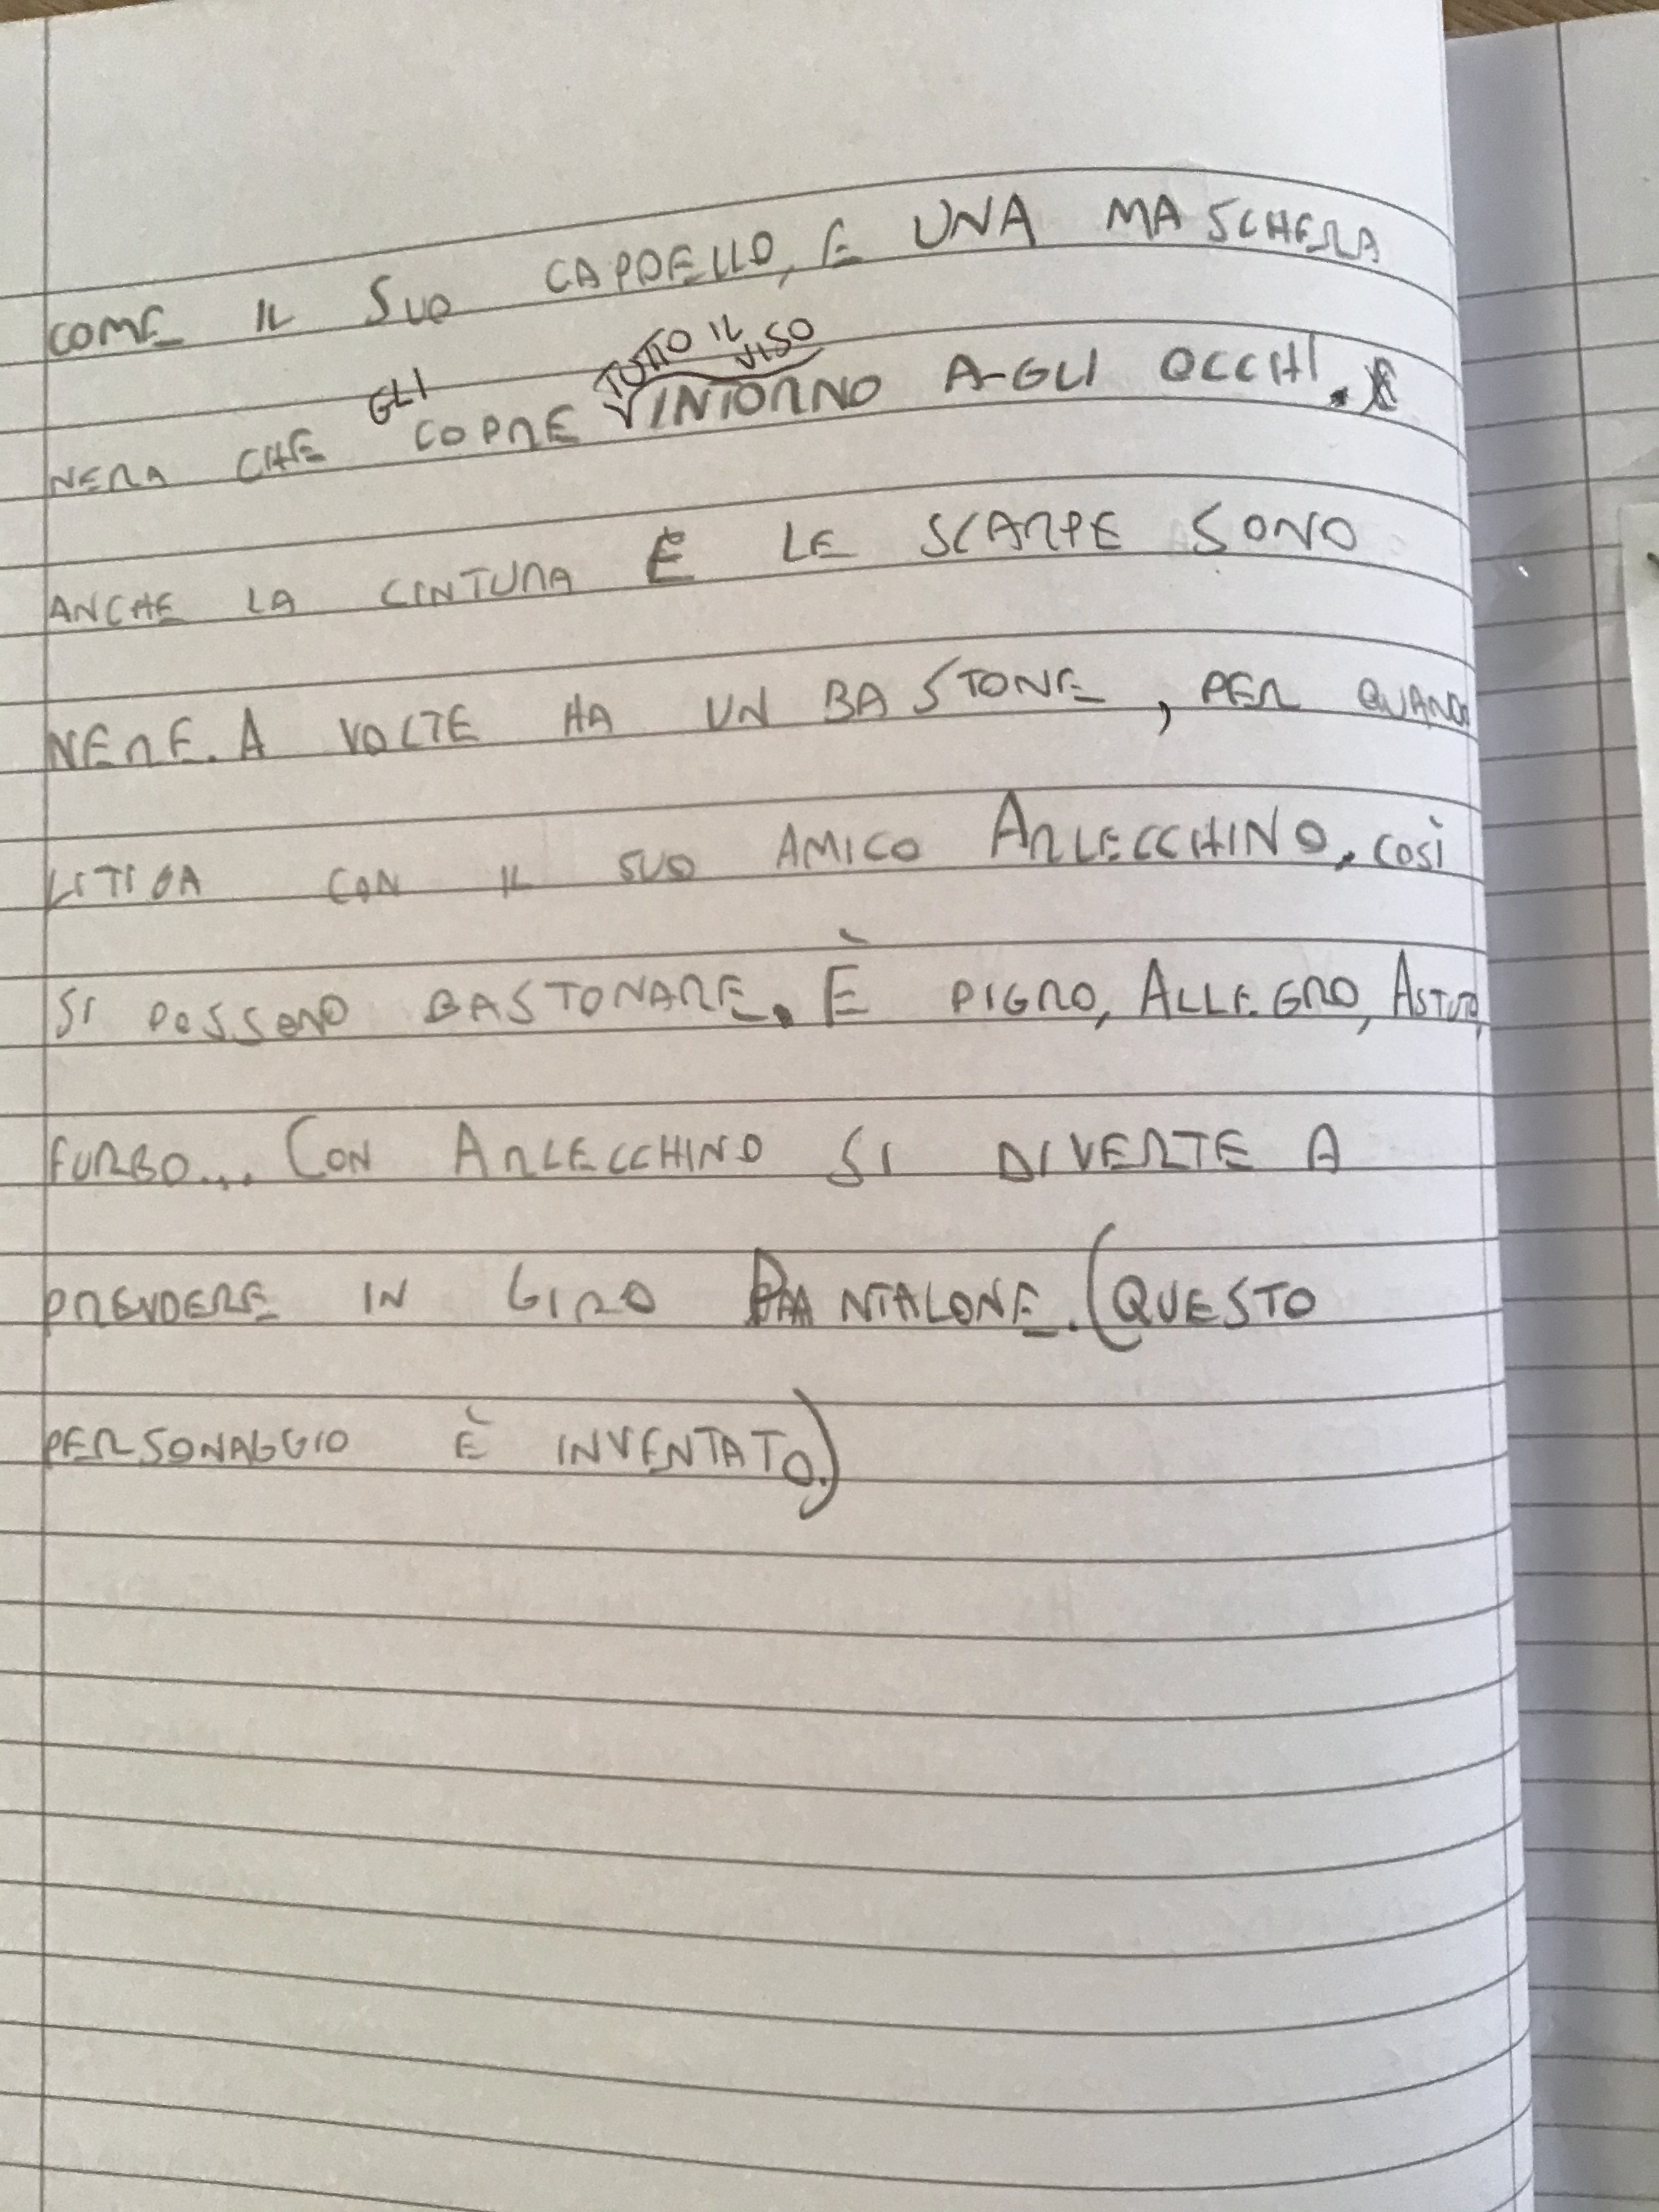 COME IL SUO CAPPELLO, E UNA MASCHERA
TUTTO IL
VISO
NERA CHE GLI COPRE INTORNO A-GLI OCCHI.
ANCHE LA CINTURA E LE SCARPE SONO
NERE. A VOLTE HA UN BASTONE, PER QUANDO
LITIGA CON IL SUO AMICO ARLECCHINO, COSÌ
SI POSSONO BASTONARE. È PIGRO, ALLEGRO, ASTUTO,
FURBO... CON ARLECCHINO SI DIVERTE A
PRENDERE IN GIRO PANTALONE. (QUESTO
PERSONAGGIO È INVENTATO.)